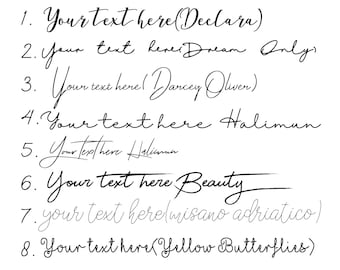 1. Your text here(Declara)
2. Your text here(Dream Only)
3. Your text here( Darcey Oliver)
4. Your text here Halimun
5. Your text here Haliimun
6. Your text here Beauty
7. your text here(misano adriatico)
8. Your text here(Yellow Butterflies)